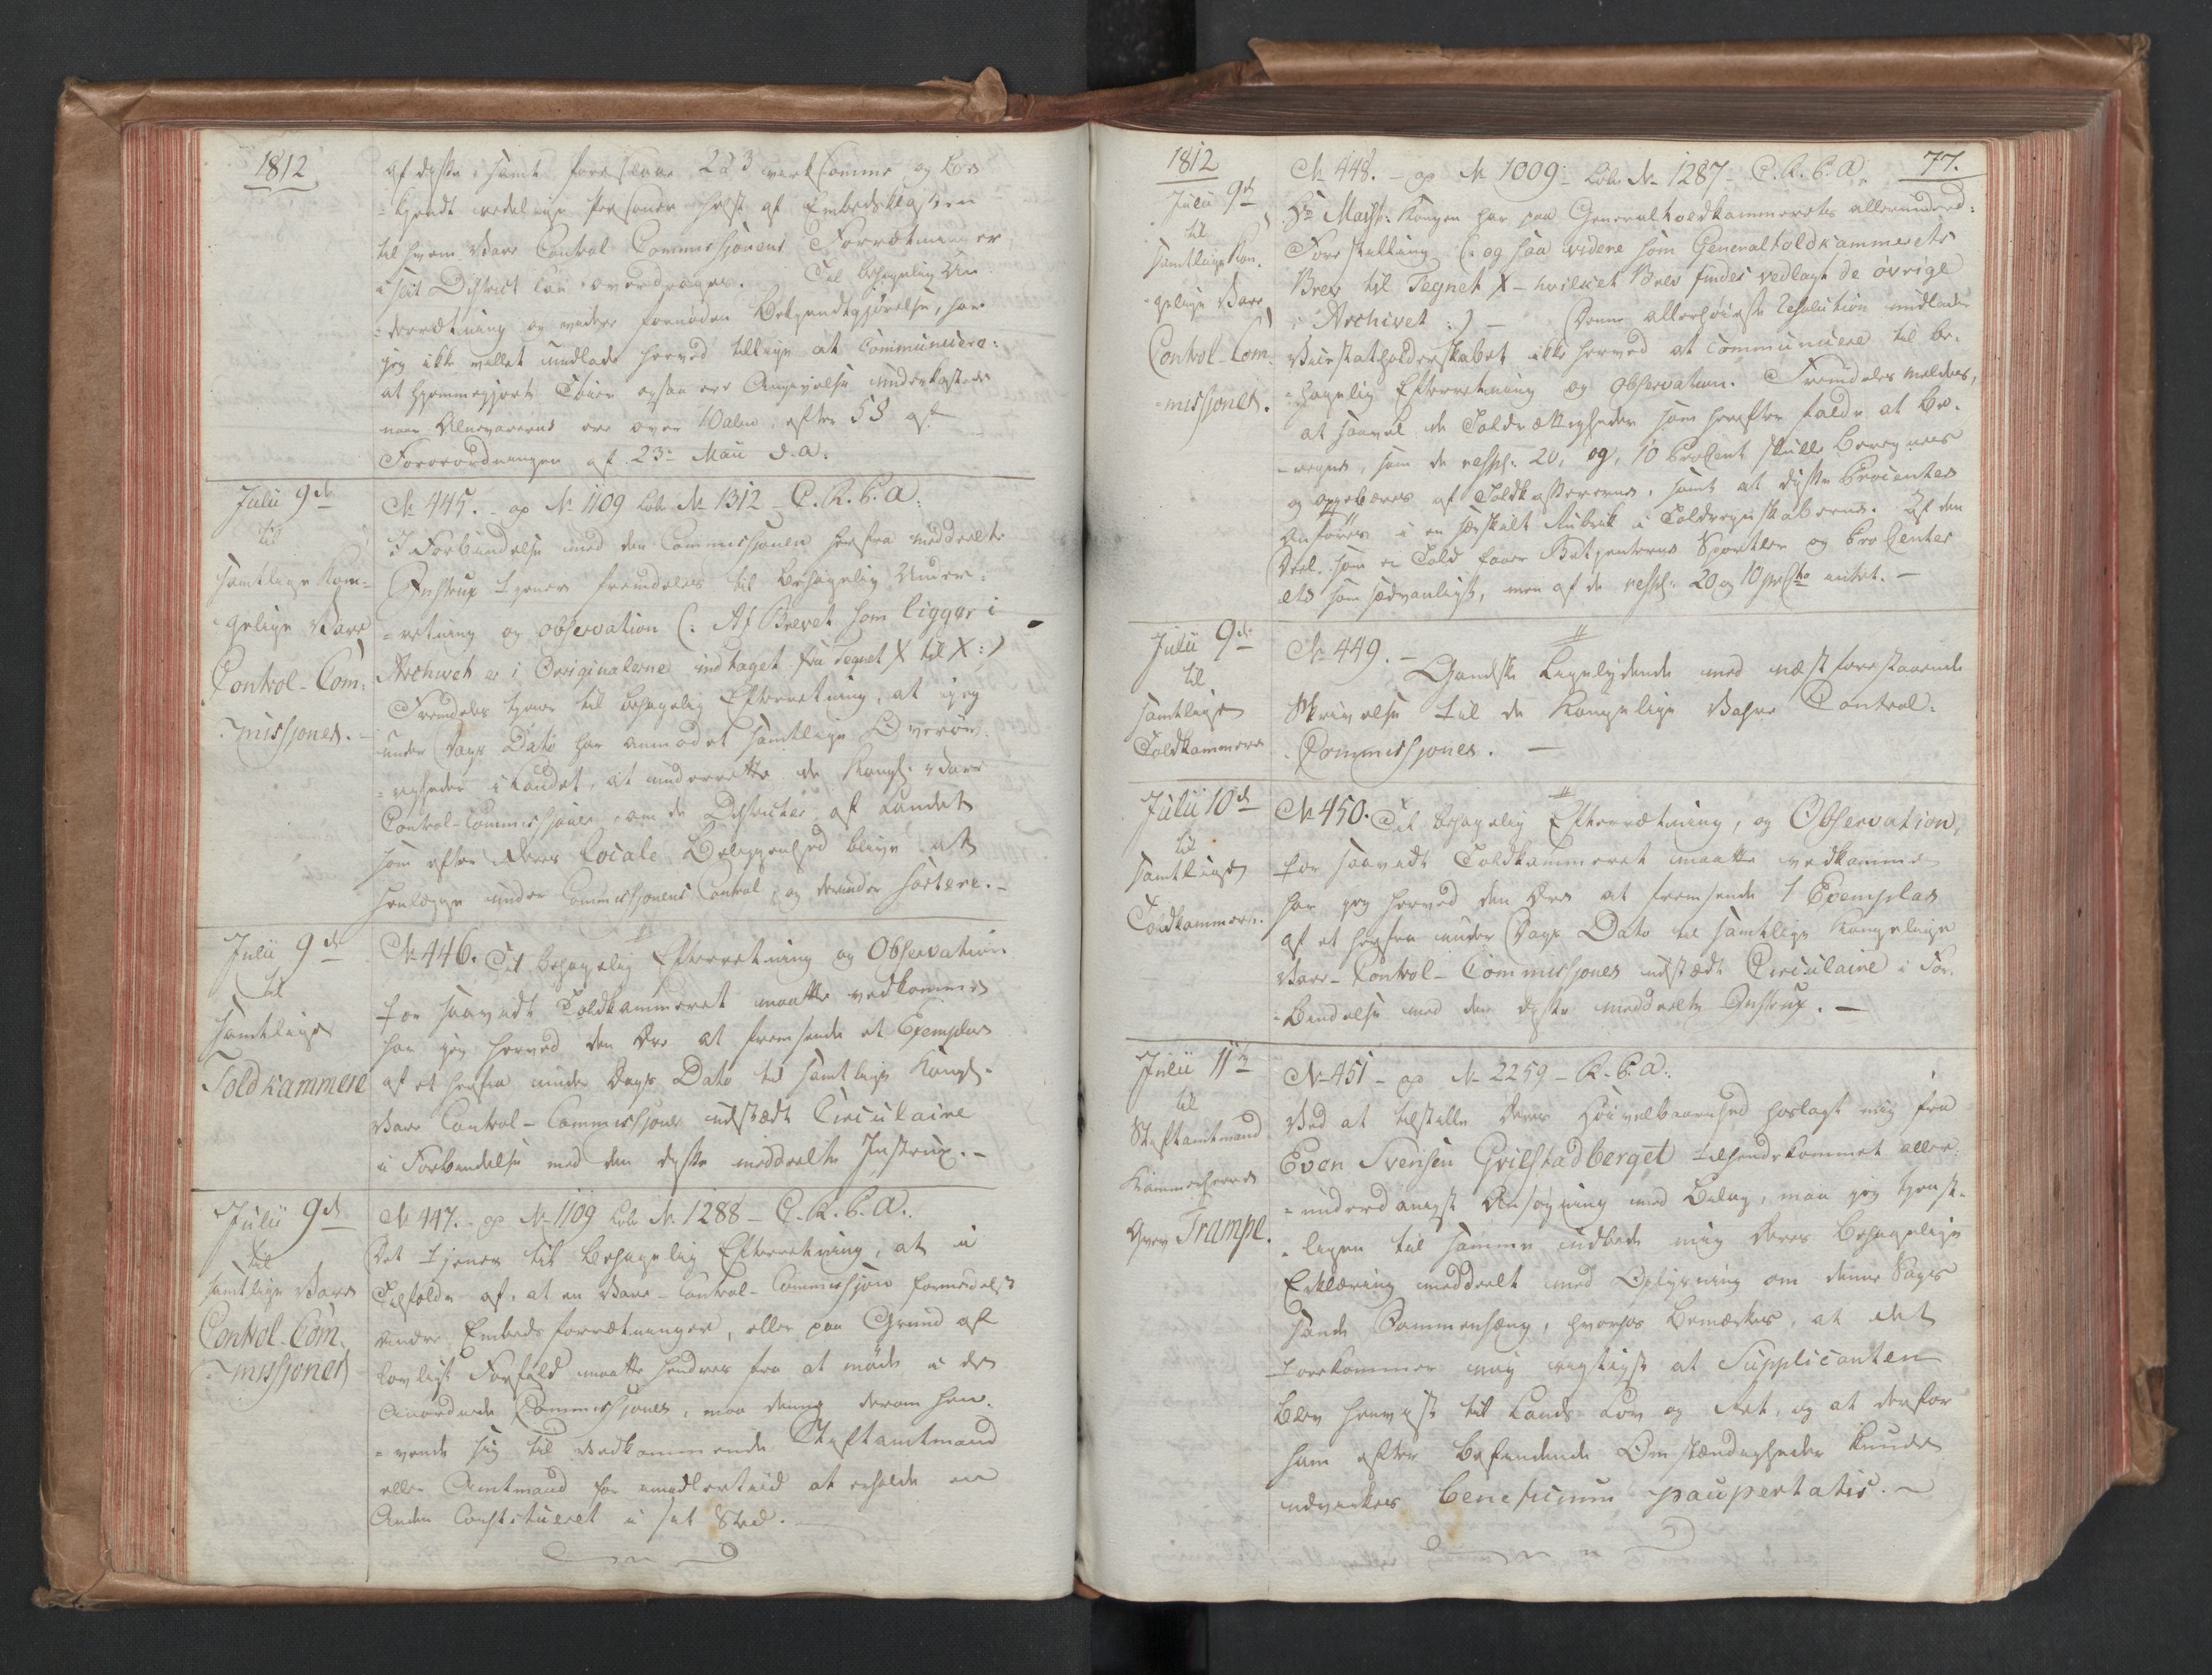 1812
af disse, samt foreslaae 2 à 3 virksomme og be-
-kjendt redelige Personer helst af Embedsklassen
til hvem Vare Control Commissionens Forrætninger
i sit District kan overdrages. Til behagelig Un-
-derrætning og videre fornøden Bekjendtgjørelse, har
jeg ikke villet undlade herved tillige at Communicere:
at hjemmegjorte Tøier ogsaa ere Angivelse underkastede
naar Alnevarerne ere over 10 Alen, efter § 8 af
Forordningen af 23de Maii d. a.
Julii 9de
til
samtlige Kon-
-gelige Vare
Control-Com-
-missjoner.
No 445. - ap No 1109 Lit. No 1312 - C. R. B. A:
I Forbindelse med den Commissionen herfra meddeelte
Instrux tjener fremdeeles til behagelig Under-
-retning og observation (: Af Brevet som ligger i
Archivet er i Originalerne indtaget fra Tegnet X til X :)
Fremdeles tjener til behagelig Efterretning, at jeg
under Dags Dato har anmodet samtlige Øvrig-
-heder i Landet, at underrette de Kongl. Vare
Control-Commissioner om de Districter af Landet
som efter deres locale Beliggenhed blive at
henlægge under Commissionens Control, og derunder sortere. -
Julii 9de
til
samtlige
Toldkammere
No 446. Til behagelig Efterretning og Observation
for saavidt Toldkammeret maatte vedkomme
har jeg herved den Ære at fremsende et Exemplar
af et herfra under Dags Dato til samtlige Kongl.
Vare Control-Commissioner udstædt Circulaire
i Forbindelse med den disse meddeelte Instrux. -
Julii 9de
til
samtlige Vare
Control-Com-
-missjoner
No 447. - ap No 1109 Lit. No 1288 - C. R. B. A.
Det tjener til behagelig Efterretning, at i
Tilfælde af, at en Vare-Control-Commission formedelst
andre Embeds forrætninger, eller paa Grund af
lovligt Forfald maatte hindres fra at møde i den
anordnede Commissioner, maa denne derom hen-
-vende sig til vedkommende Stiftamtmand
eller Amtmand for imidlertid at erholde en
Anden Constitueret i sit Sted.
1812
77.
Julii 9de
til
samtlige Kon-
-gelige Vare
Control-Com-
-missjoner.
No 448. - ap No 1009 - Lit. No 1287 - C. R. B. A.
Hs Majst: Kongen har paa Generaltoldkammerets allerunderd:
Forestilling (: og saa videre som Generaltoldkammerets
Brev til Tegnet X - hvilket Brev findes vedlagt de øvrige
i Archivet :) - Denne allerhøieste Resolution undlader
Vicestatholderskabet ikke herved at communicere til be-
-hagelig Efterretning og Observation. Fremdeles meldes,
at saavel de Toldrættigheder som herefter falde at be-
-regnes, som de respct: 20, og 10 ProCent skulle beregnes
og oppebæres af Toldkassererne, samt at disse Procenter
anføres i en særskilt Rubrik i Toldregnskaberne. Af den
Deel, som ei Told faaer Betjenterne Sportler og ProCenter
ets som sædvanligt, men af de respct: 20 og 10 pCto intet. -
Julii 9de
til
samtlige
Toldkammere
No 449. - Gandske Ligelydende med næstforestaaende
Skrivelse til de Kongelige Vahre Control-
-Commissjoner. -
Julii 10de
til
samtlige
Toldkammere.
No 450. Til behagelig Efterrætning, og Observation,
for saavidt Toldkammeret maatte vedkomme
har jeg herved den Ære at fremsende 1 Exemplar
af et herfra under Dags Dato til samtlige Kongelige
Vare-Control-Commissjoner udstædt Circulaire i For-
-bindelse med den disse meddeelte Instrux. -
Julii 11te
til
Stiftamtmand
Kammerherre
Grev Trampe.
No 451 - ap No 2259 - R. B. A.
Ved at tilstille Deres Høivelbaarenhed hoslagt mig fra
Even Svensen Grilstadberget tilhendekommet aller-
-underdanigst Ansøgning med Bilag, maa jeg tjenst-
-ligen til samme udbede mig Deres behagelige
Erklæring meddeelt med Oplysning om denne Sags
sande Sammenhæng, hvorhos bemærkes, at det
forekommer mig rigtigst at Supplicanten
blev henviist til Lands Lov og Ret, og at derfor
ham efter befindende Omstændigheder kunde
udvirkes beneficium paupertatis. -